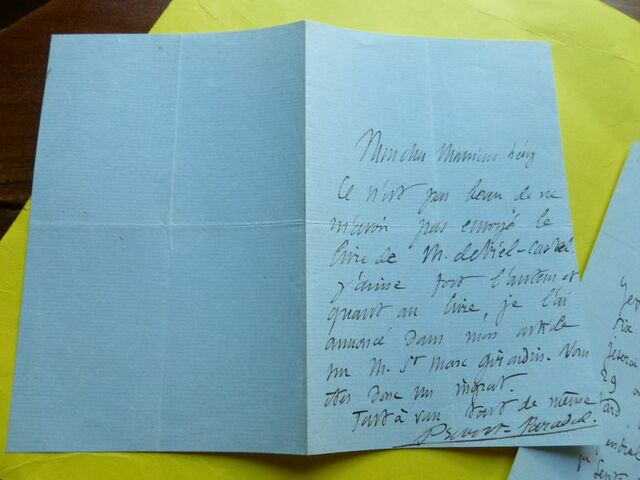 Mon cher Monsieur Lévy
Ce n'est pas beau de ne
m'avoir pas envoyé le
livre de M. de Viel-Castel
j'aime fort l'auteur et
quant au livre, je l'ai
annoncé dans mon article
sur M. St Marc Girardin. Vous
êtes donc un ingrat.
Tout à vous tout de même
Prevost-Paradol.
29